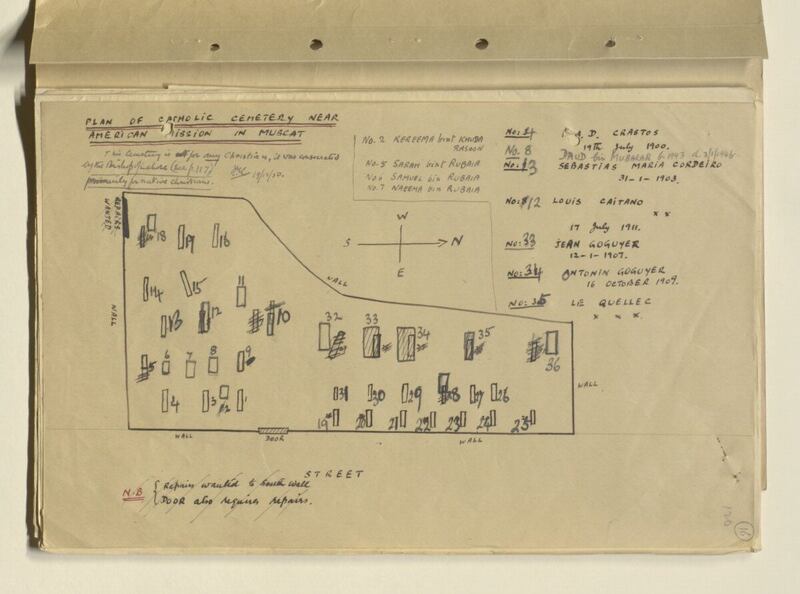 PLAN OF CATHOLIC CEMETERY NEAR
AMERICAN MISSION IN MUSCAT
This Cemetery is for any Christian, it was consecrated
by the Bishop (see p. 117)
primarily for native christians.
No. 2 KEREEMA bint KHUBA
RASOON
No. 5 SARAH bint RUBAIA
No 6 SAMUEL bin RUBAIA
No. 7 NAEEMA bin RUBAIA
D. CRASTOS
19th July 1900.
No. 8 DAUD bin MUBARAK b. 1943 d.
No: 13 SEBASTIAS MARIA CORDEIRO
31-1-1903.
No: 12 LOUIS CAITANO
x x
17 July 1911.
No: 33 JEAN GOGUYER
12-1-1907.
No: 34 ANTONIN GOGUYER
16 OCTOBER 1909.
No: 35 LE QUELLEC
x x x
W
S N
E
REPAIRS
WANTED
WALL
18 17 16
14 15 11
13 12 10
5 6 7 8 9
4 3 2 1
WALL
32 33 34 35 36
31 30 29 28 27 26
19 20 21 22 23 24 25
WALL
WALL
DOOR
WALL
STREET
N.B { Repairs wanted to South wall
{ DOOR also requires repairs.
120
16